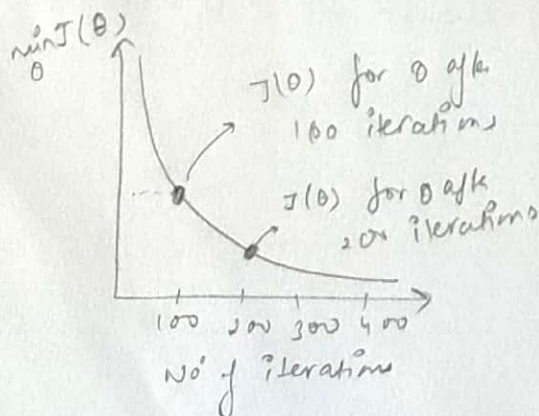 min J(θ)
θ
J(θ) for θ after
100 iterations
J(θ) for θ after
200 iterations
100 200 300 400
No of iterations